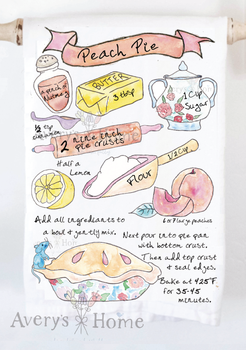 Peach Pie
a pinch of
Nutmeg
BUTTER
3 tbsp
1 Cup
Sugar
1/2 tsp
cinnamon
2 nine inch
pie crusts
Half a
Lemon
Flour
1/2 Cup
6 or 7 large peaches
Add all ingrediants to
a bowl & gently mix.
Next pour into pie pan
with bottom crust.
Then add top crust
& seal edges.
Bake at 425°F
for 35-45
minutes.
Avery's Home